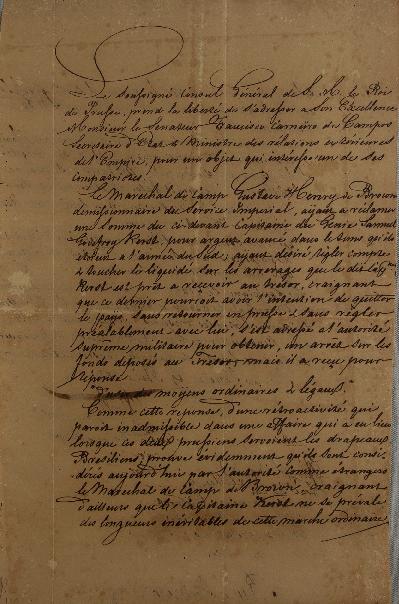 Le Soussigné Consul Général de S. M. le Roi
de Prusse, prend la liberté de s'adresser a Son Excellence
Monsieur le Senateur Francisco Carneiro de Campos
Secretaire d'Etat & Ministre des relations exterieures
de l'Empire, pour un objet qui interesse un de ses
compatriotes.
Le Marechal de Camp Gustave Henry de Brown
demissionnaire du Service Imperial, ayant a réclamer
une somme du ci-devant Capitaine du Genie Samuel
Godefroy Kerst, pour argent avancé dans le tems qu'ils
étoient a l'armée du Sud, ayant désiré regler compte
& toucher le liquide sur les arrerages que le dit Cap
Kerst est prêt a recevoir au Trésor, craignant
que ce dernier pourroit avoir l'intention de quitter
le pays, sans retourner en prusse & sans régler
préalablement avec lui, s'est adressé a l'autorité
suprême militaire pour obtenir, un arrêt sur les
fonds deposés au Trésor, mais il a reçu pour
réponse
d'user des moyens ordinaires & légaux."
Comme cette reponse, d'une rétroactivité qui
paroit inadmissible dans une affaire qui a eu lieu
lorsque ces deux prussiens servoient les drapeaux
Bresiliens, prouve evidemment qu'ils sont consi-
dérés aujourd'hui par l'autorité comme étrangers
le Marechal de Camp de Brown, craignant
d'ailleurs que le Capitaine Kerst ne se prévale
des longueurs inévitables de cette marche ordinaire